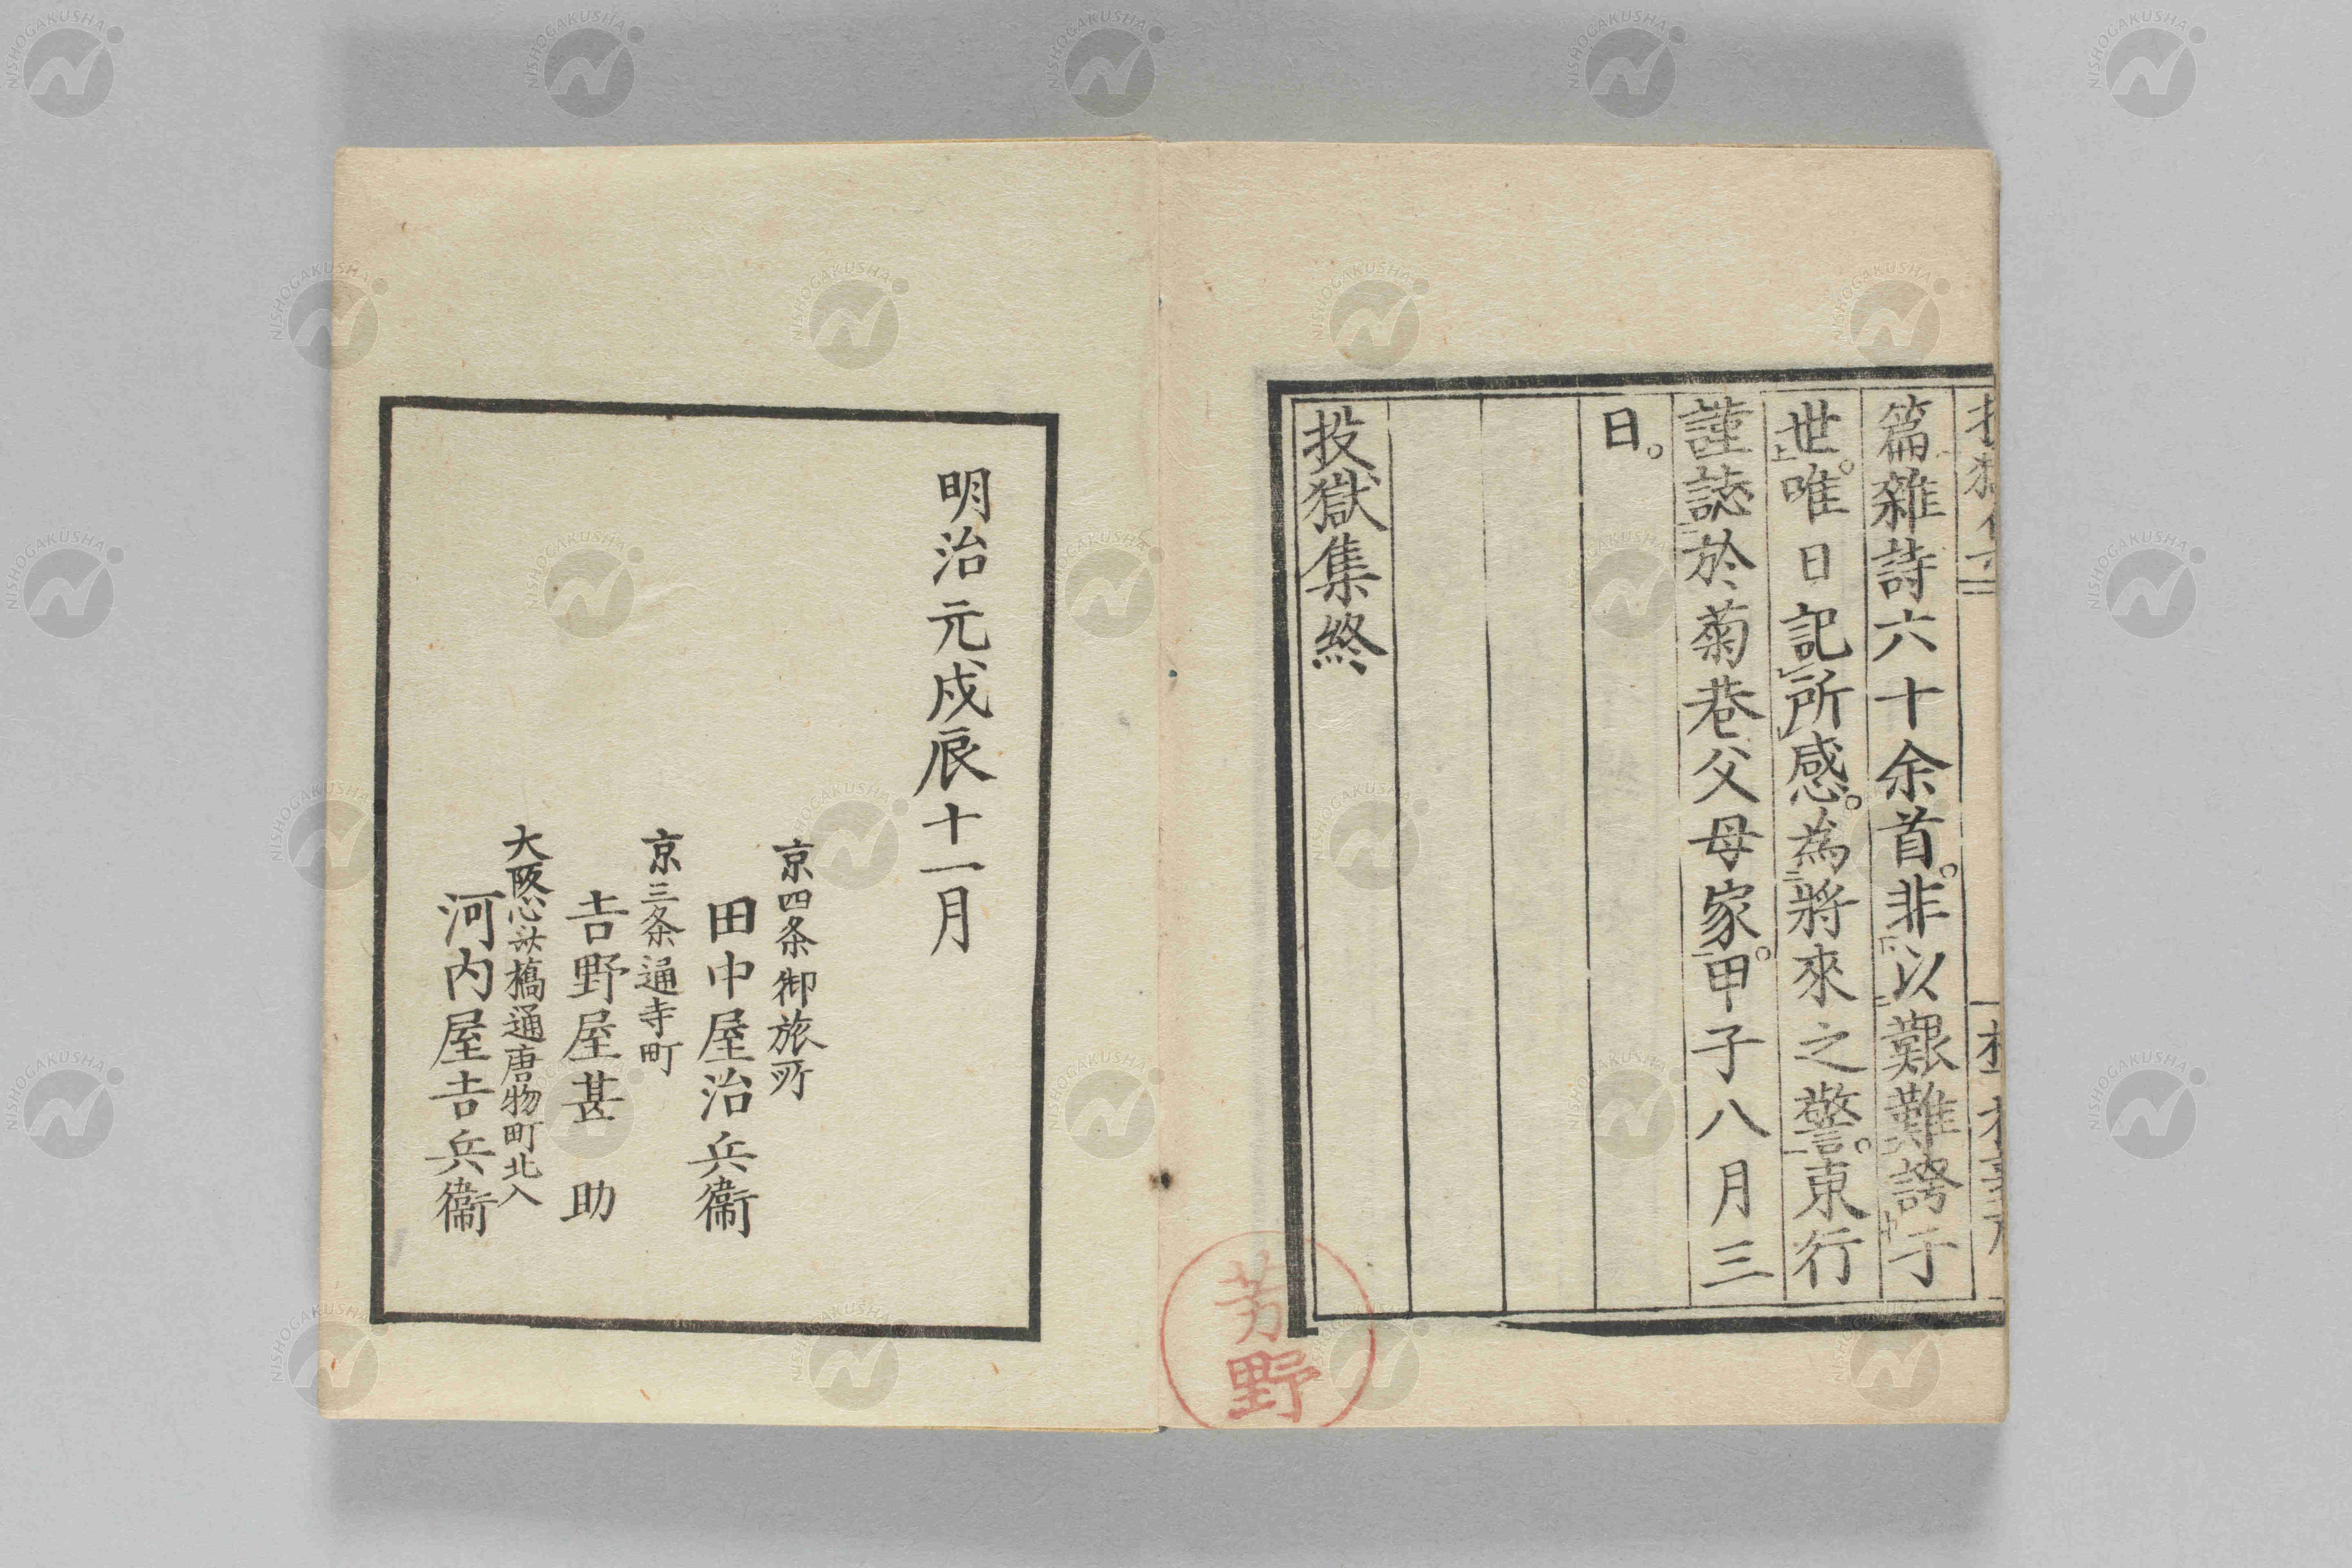 篇雜詩六十余首。非以艱難誇于
世。唯日記所感。為將來之警。東行
謹誌於菊巷父母家。甲子八月三
日。
投獄集終
芳野
明治元戊辰十一月
京四条御旅所
田中屋治兵衞
京三条通寺町
吉野屋甚助
大阪心斎橋通唐物町北入
河内屋吉兵衞
NISHOGAKUSHA